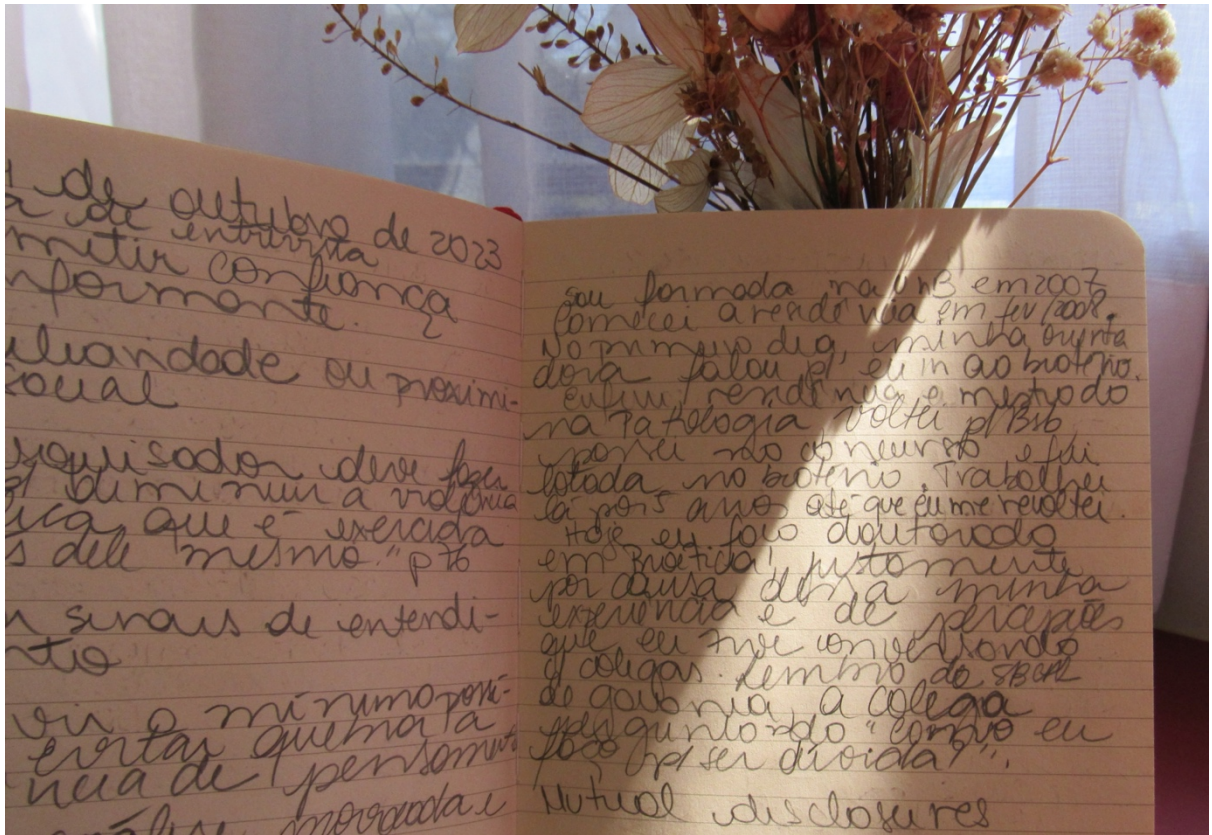 de outubro de 2023
a de entrevista
mitir confiança
nformante.
uliaridade ou proximi-
social
squisador deve fazer
p/ diminuir a violência
ica que é exercida
s dele mesmo." p76
sinais de entendi-
nto
vir o mínimo possí-
evitar quebra a
ncia de pensamento
análise
Sou formada na UnB em 2007
comecei a residência em fev/2008.
No primeiro dia, a minha orienta
dora falou p/ eu ir ao biotério.
Enfim, residência e mestrado
na Patologia voltei p/ Bsb
passei no concurso e fui
lotada no biotério Trabalhei
lá por anos até que eu me revoltei.
Hoje eu faço doutorado
em Bioética, justamente
por causa dessa minha
experiência e de percepções
que eu tive conversando
c/ colegas. Lembro do SBCAL
de goiania, a colega
perguntando "como eu
faço p/ ser
Mutual disclosures